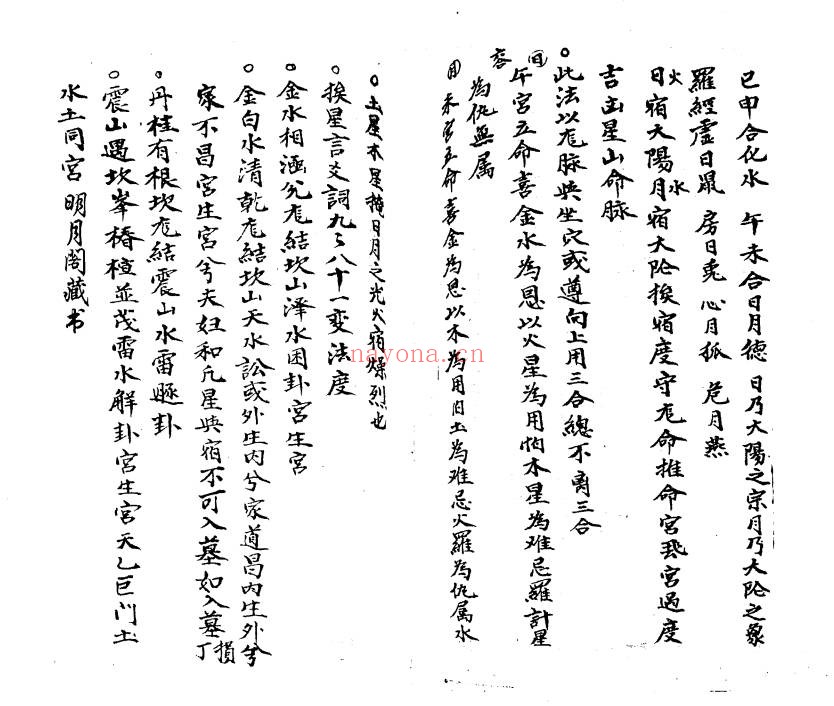 巳申合化水 午未合日月德 日乃大陽之宗月乃大阴之象
羅經虛日鼠 房日兎 心月狐 危月燕
日火宿大陽月水宿大阴挨宿度守龙命推命宮飛宮過度
吉玄星山命脉
此法以龙脉與坐穴或遵向上用三合總不离三合
午宮立命喜金水為恩以火星為用怕木星為难忌羅計星
為仇無属
未宮立命喜金為恩以木為用日土為难忌火羅為仇属水
土星木星掩日月之光火宿爍烈也
挨星言爻詞九之八十一变法度
金水相涵兌龙結坎山泽水困卦宮生宮
金白水清乾龙結坎山天水訟或外生内兮家道昌内生外兮
家不昌宮生宮兮夫妇和凡星與宿不可入墓如入墓損丁
丹桂有根坎龙結震山水雷
卦
震山遇坎峯椿楦並茂雷水解卦宮生宮天乙巨门土
水土同宮 明月阁藏书
nayona.cn